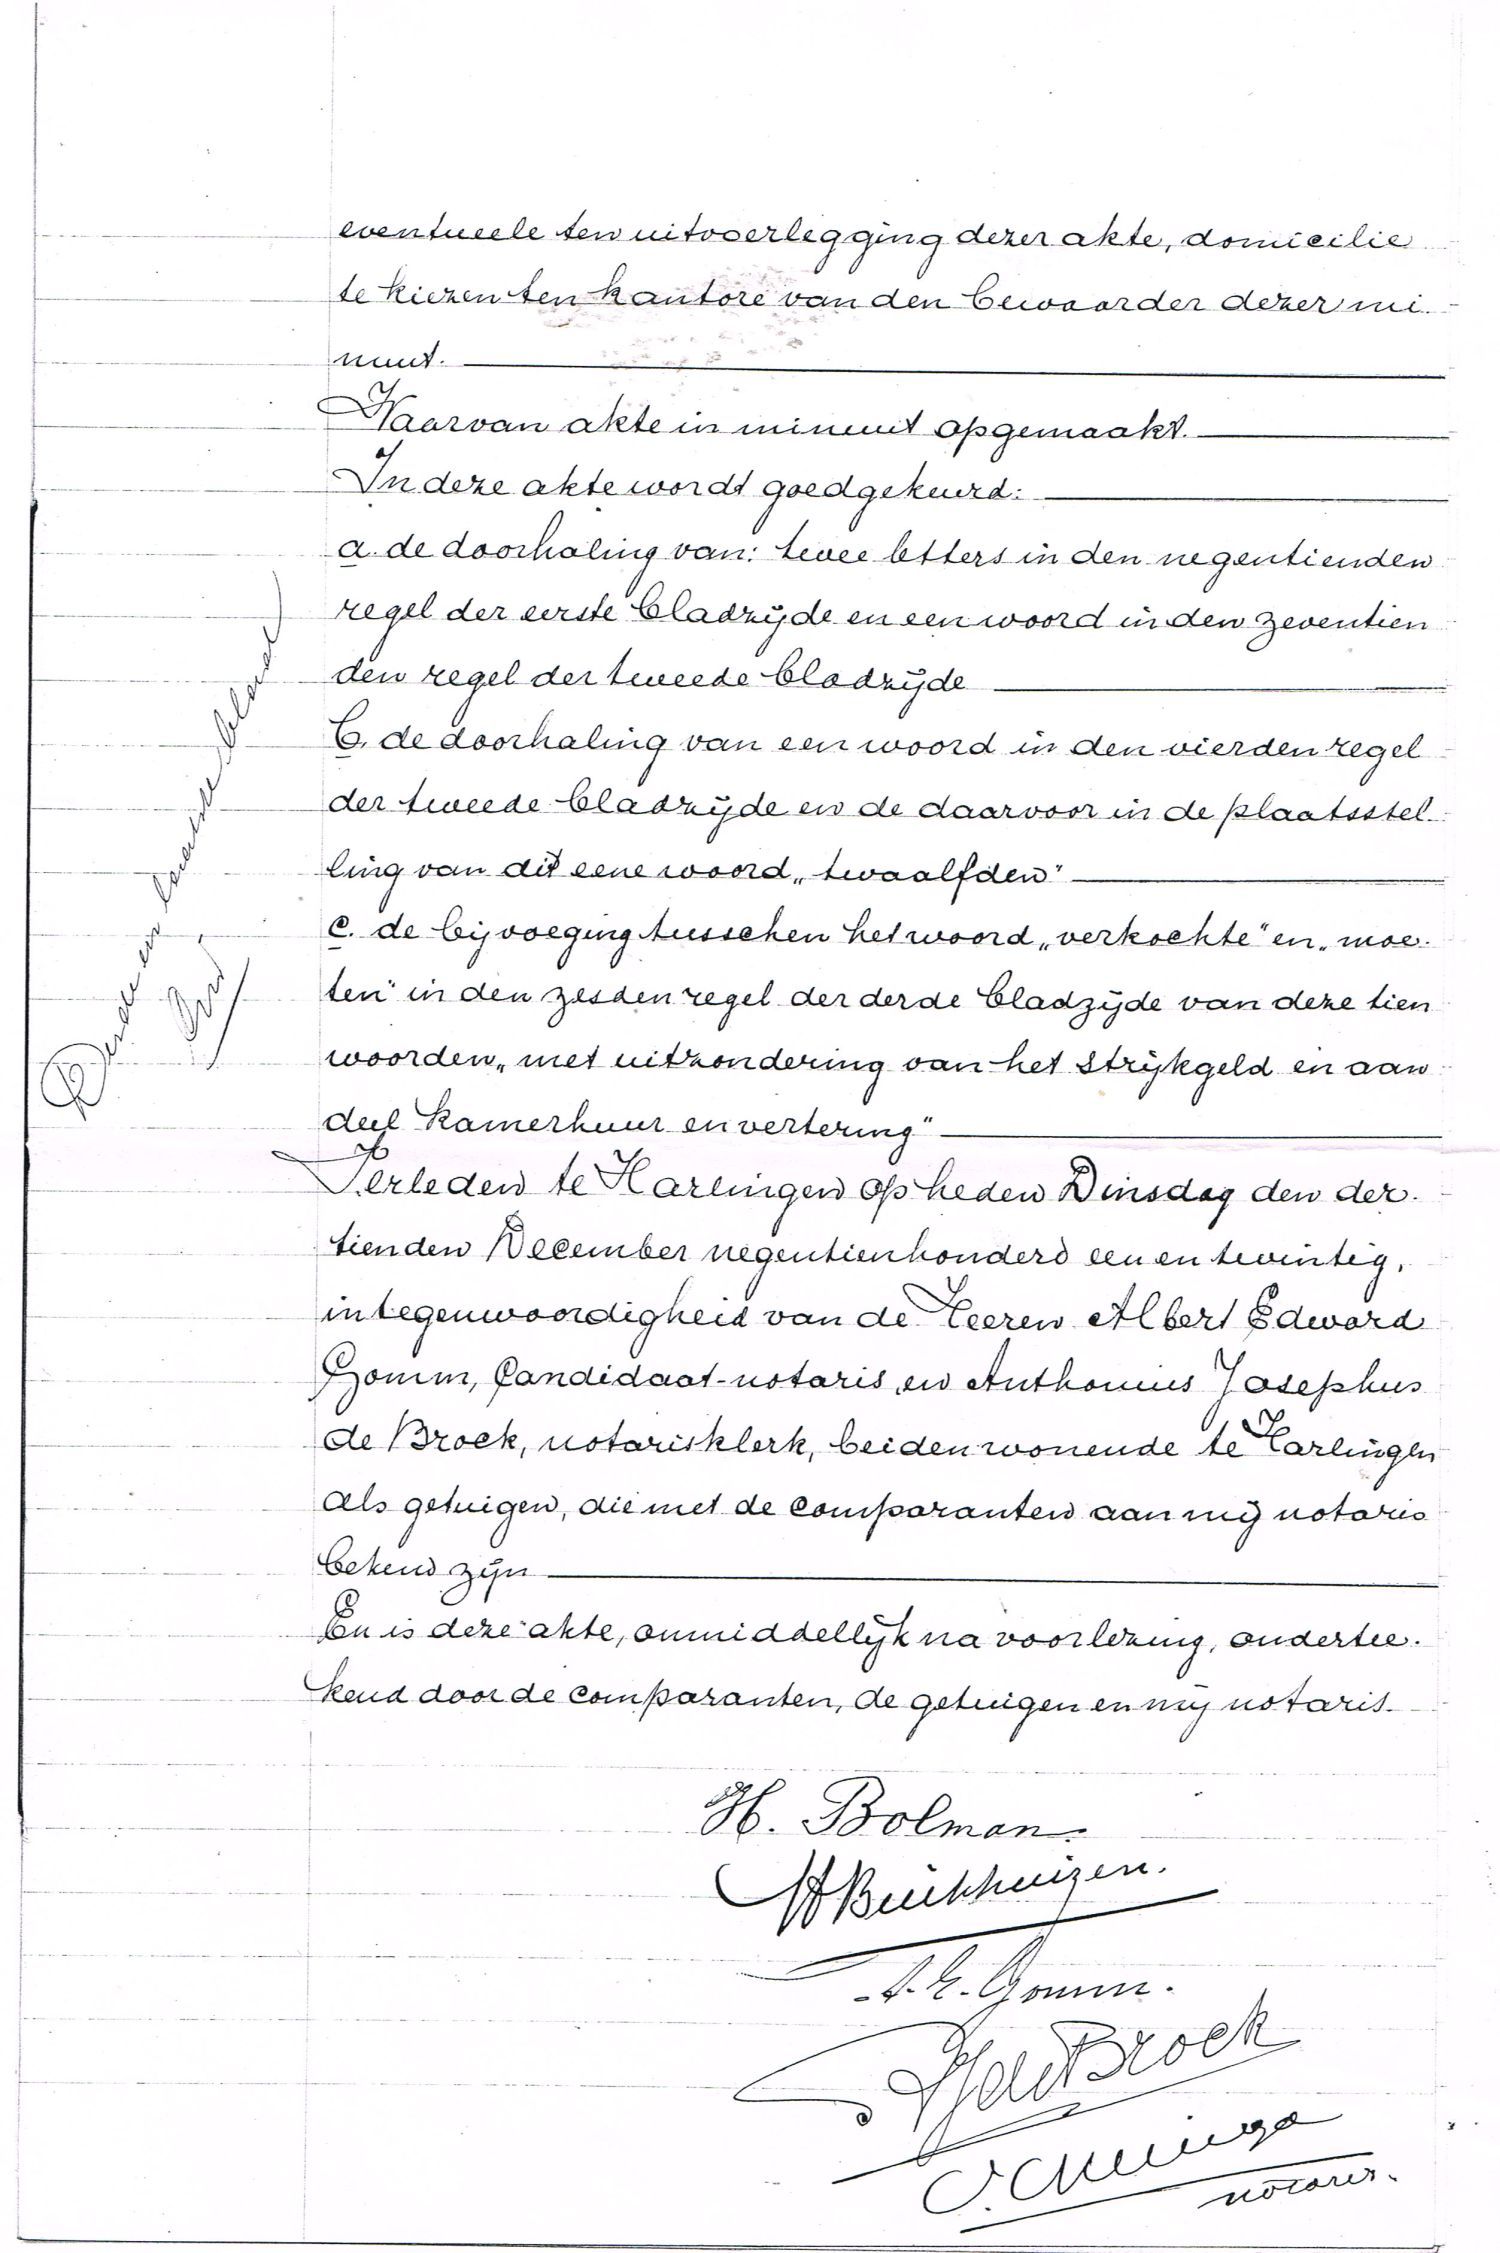 eventueele ten uitvoerlegging dezer akte, domicilie
te kiezen ten kantore van den bewaarder dezer mi-
nuut.
Waarvan akte in minuut opgemaakt.
In deze akte wordt goedgekeurd:
a. de doorhaling van: twee letters in den negentienden
regel der eerste bladzijde en een woord in den zeventien
den regel der tweede bladzijde
b. de doorhaling van een woord in den vierden regel
der tweede bladzijde en de daarvoor in de plaatsstel-
ling van dit eene woord „twaalfden"
c. de bijvoeging tusschen het woord „verkochte" en „moe-
ten" in den zesden regel der derde bladzijde van deze tien
woorden „met uitzondering van het strijkgeld en aan
deel kamerhuur en vertering"
Verleden te Harlingen op heden Dinsdag den der-
tienden December negentienhonderd een en twintig,
in tegenwoordigheid van de Heeren Albert Edward
Gomm, Candidaat-notaris, en Anthonius Josephus
de Broek, notarisklerk, beiden wonende te Harlingen
als getuigen, die met de comparanten aan mij notaris
bekend zijn
En is deze akte, onmiddellijk na voorlezing, ondertee-
kend door de comparanten, de getuigen en mij notaris.
Derde en laatste blad
H. Bolman.
A. E. Gomm.
AJdeBroek
notaris.